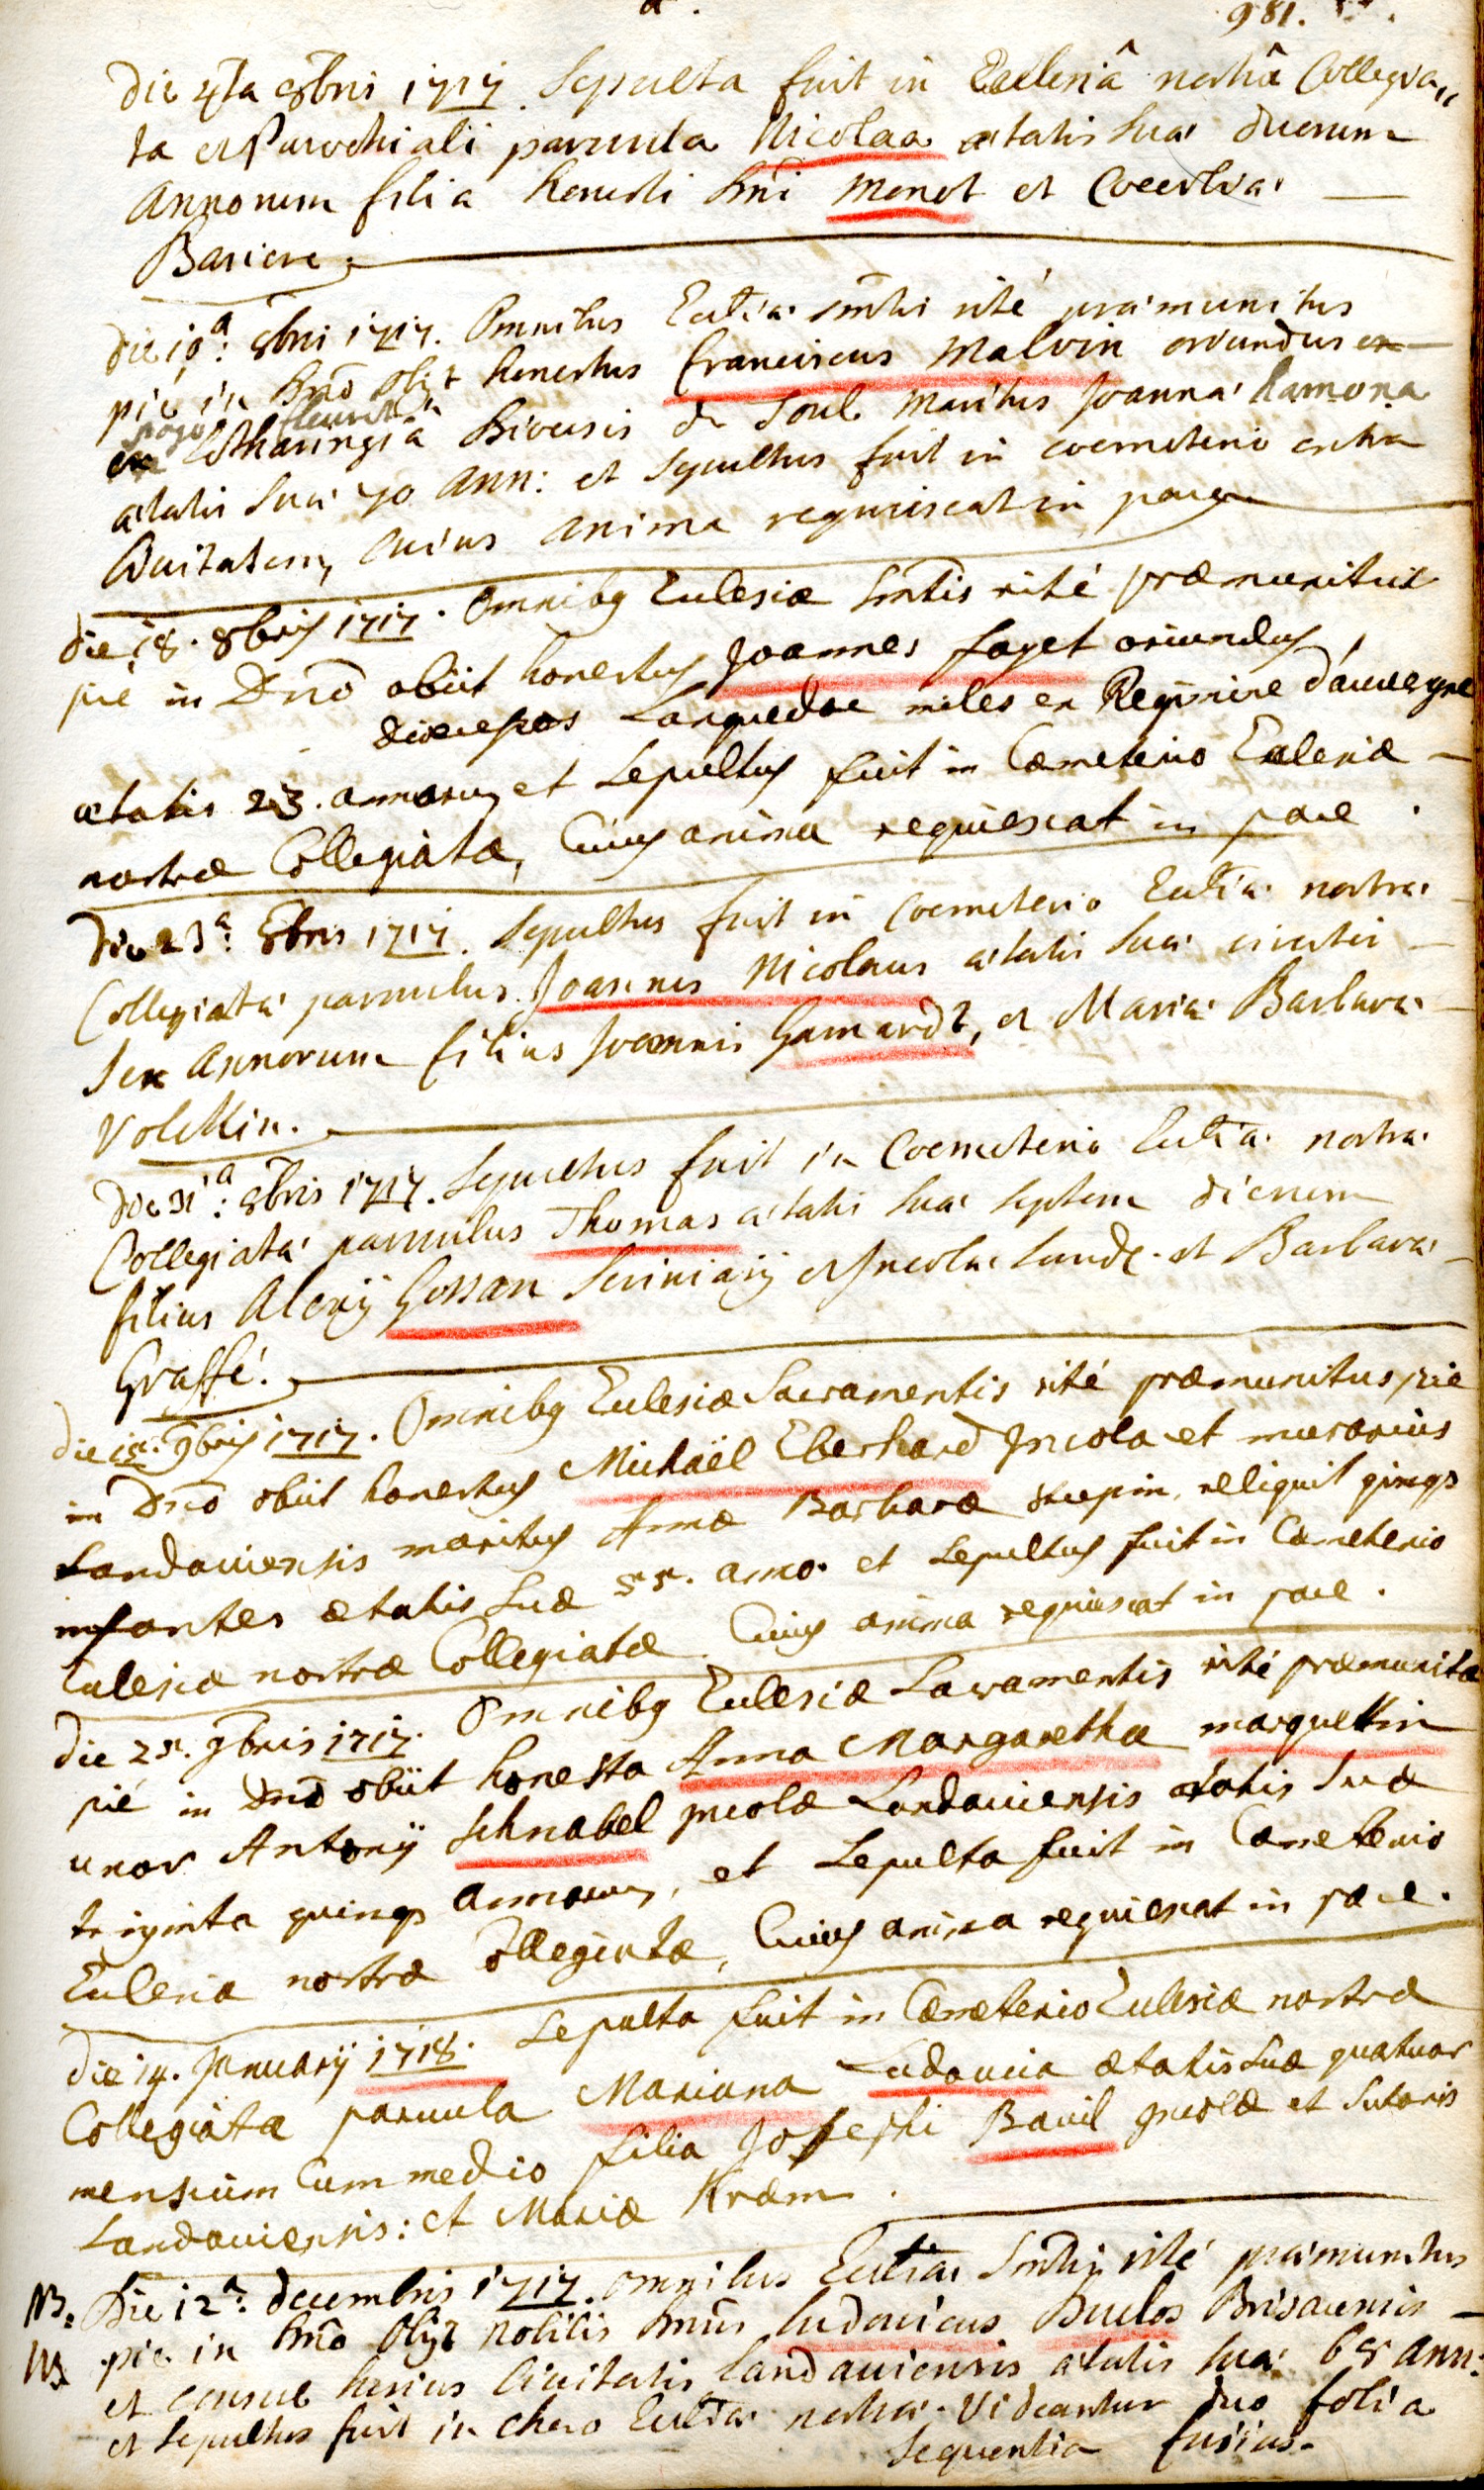 981.
Die 4ta 8bris 1717. Sepulta fuit in Ecclesiâ nostrâ Collegia„
ta et Parochiali parvula Nicolaa ætatis suæ duorum
annorum filia honesti Dni Monet et Coecoliæ
Bariere.
Die 10a: 8bris 1717. Omnibus Eccliæ Smtis rité præmunitus
pie in Dno obijt honestus Franciscus Malvin oriundus ex
ex Lotharingiâ Diocesis de Toul maritus Joannæ Ramona
ætatis suæ 40 ann: et sepultus fuit in coemeterio extra
Civitatem, cuius anima requiescat in pace
die 18. 8bris 1717. Omnibq Ecclesiæ Smtis rité præmunitus
pié in Dno obiit honestus Joannes Faget oriundus
diocesos Languedoc miles ex Regimine d'auvergne
ætatis 23. annorum et Sepultus fuit in Cæmeterio Ecclesiæ
nostræ Collegiatæ, Cuius anima requiescat in pace.
Die 23a: 8bris 1717. Sepultus fuit in Coemeterio Eccliæ nostræ
Collegiatæ parvulus Joannes Nicolaus ætatis suæ circiter
sex annorum filius Joannis Gamardt, et Mariæ Barbaræ
Volckin.
Die 31a: 8bris 1717. Sepultus fuit in Coemeterio Eccliæ nostræ
Collegiatæ parvulus Thomas ætatis suæ septem dierum
filius Alexij Gossan Scriniarij et Incolæ Land: et Barbaræ
Graffé.
die 15. 9bris 1717. Omnibq Ecclesiæ Sacramentis rité præmunitus pie
in Dno obiit honestus Michaël Eberhard Incola et murarius
Landaviensis maritus Annæ Barbaræ reliquit qinqs
infantes ætatis Suæ 55. anno. et Sepultus fuit in Cæmeterio
Ecclesiæ nostræ Collegiatæ. Cuius anima requiescat in pace.
Die 25. 9bris 1717. Omnibq Ecclesiæ Sacramentis rité præmunita
pié in Dno obiit honesta Anna Margaretha marquettin
uxor Antonij Schnabel Incolæ Landaviensis ætatis Suæ
triginta quinqs annorum, et Sepulta fuit in Cæmeterio
Ecclesiæ nostræ Collegiatæ, Cuius anima requiescat in pace.
Die 14. January 1718. Sepulta fuit in Cæmeterio Ecclesiæ nostræ
Collegiatæ parvula Mariana Ludovica ætatis Suæ quatuor
mensium Cum medio filia Josephi Bavil Incolæ et Sutoris
Landaviensis: et Mariæ Kræm.
NB: Die 12a: decembris 1717. omnibus Eccliæ Smtis rité præmunitus
NB pie in Dno obijt nobilis Dnus Ludovicus Duclos Brisacensis
et consul huius Civitatis Landaviensis ætatis suæ 68 ann:
et sepultus fuit in choro Eccliæ nostræ. Videantur duo folia
sequentia fusius.